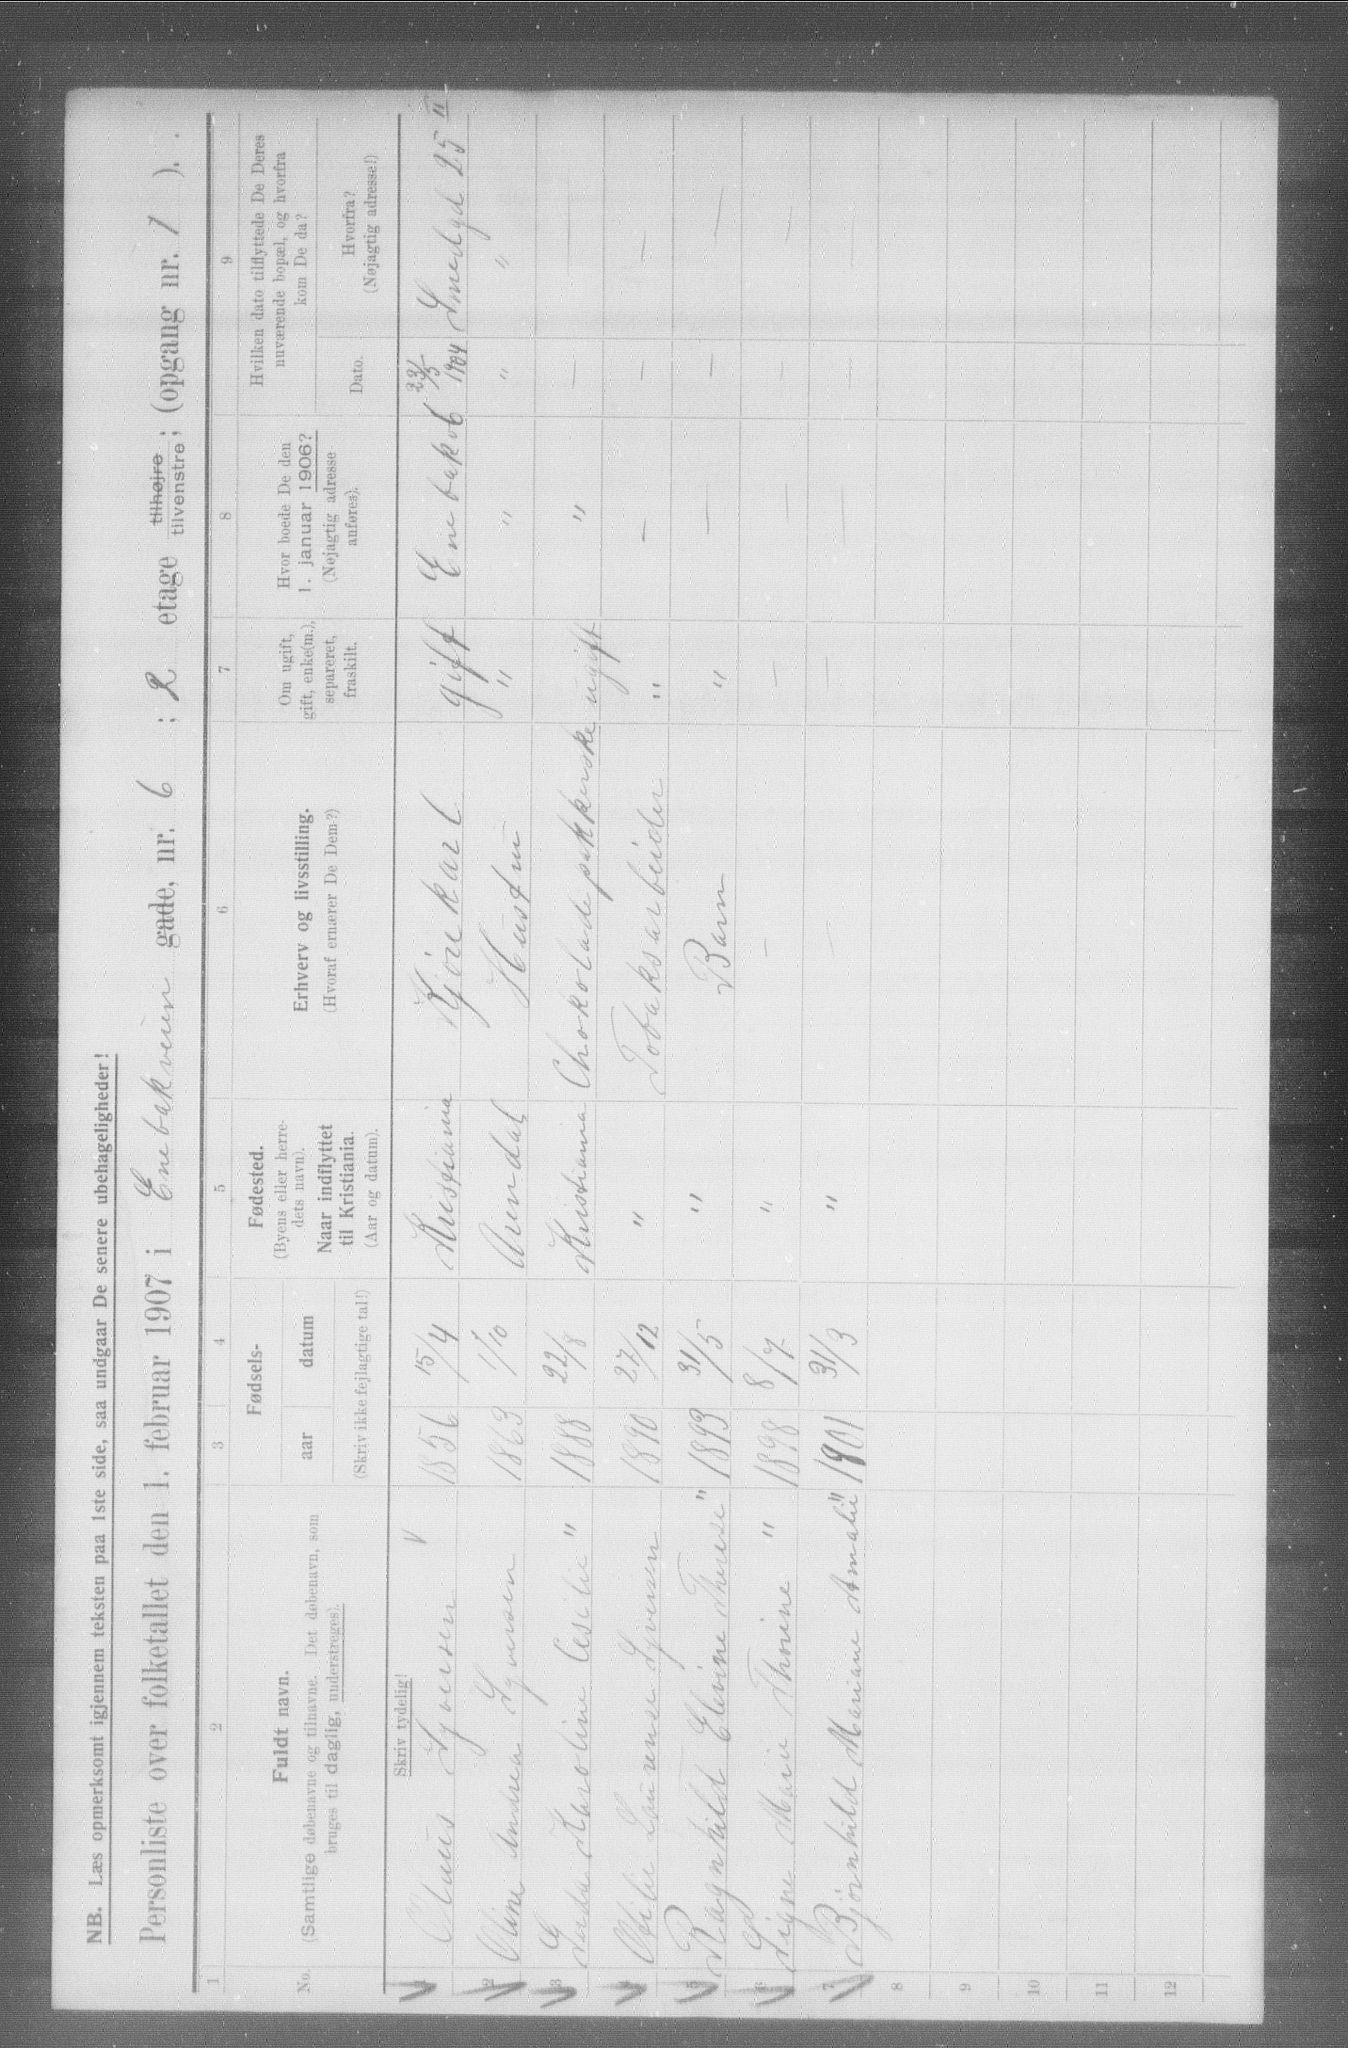 NB. Læs opmerksomt igjennem teksten paa 1ste side, saa undgaar De senere ubehageligheder!
Personliste over folketallet den 1. februar 1907 i Enebakveien gade, nr. 6 ; 2 etage tilhøjre tilvenstre ; (opgang nr. 1 ).
1 2 3 4 5 6 7 8 9
No. Fuldt navn. (Samtlige døbenavne og tilnavne. Det døbenavn, som bruges til daglig, understreges).
Fødsels- aar datum (Skriv ikke fejlagtige tal!)
Fødested. (Byens eller herredets navn). Naar indflyttet til Kristiania. (Aar og datum).
Erhverv og livsstilling. (Hvoraf ernærer De Dem?)
Om ugift, gift, enke(m.), separeret, fraskilt.
Hvor boede De den 1. januar 1906? (Nøjagtig adresse anføres).
Hvilken dato tilflyttede De Deres nuværende bopæl, og hvorfra kom De da?
Dato. Hvorfra? (Nøjagtig adresse!)
Skriv tydelig!
1 Syversen 1856 15/4 Kristiania Kjörekarl gift Enebakv 6 23/5 1904 Smedgd 25 II
2 Oline Andrea Syversen 1863 1/10 Arendal Hustru " " " "
3 Karoline " 1888 22/8 Kristiania Chokoladepakkerske ugift " — —
4 Laurense Syversen 1890 27/12 " Tobaksarbeider " — — —
5 Ragnhild Elvine Therese " 1893 31/5 " Barn " — — —
6 Signe Marie Thorine " 1898 8/7 " — — — — —
7 Bjönhild Mariane Amalie " 1901 31/3 " — — — — —
8
9
10
11
12